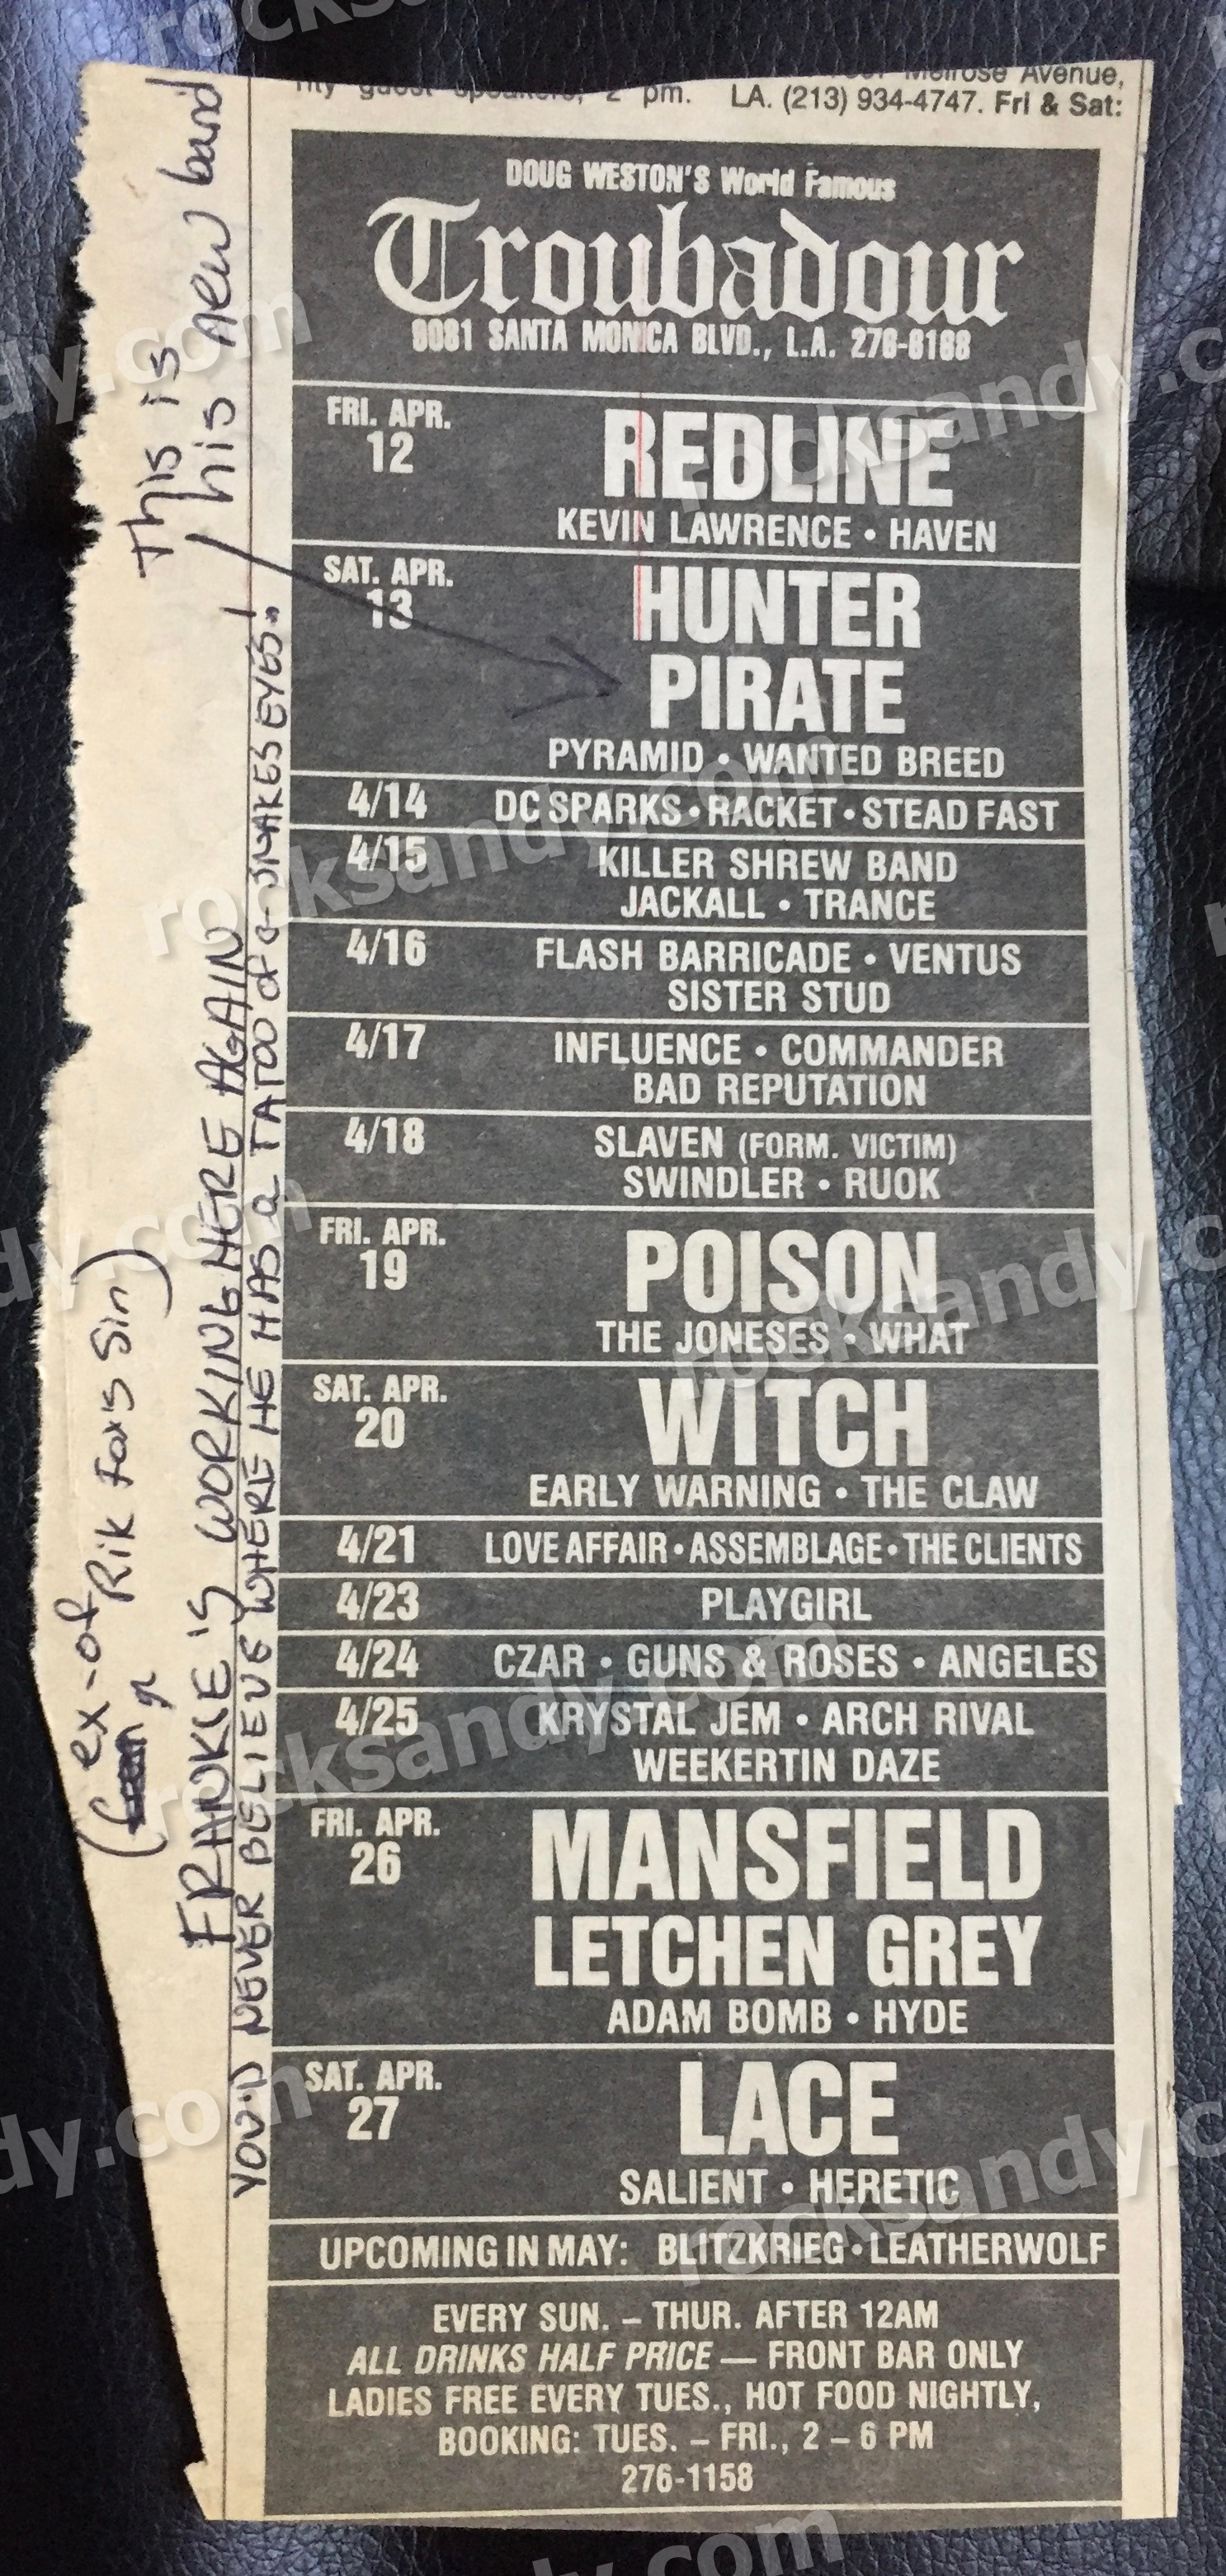 Melrose Avenue,
guest speakers, 2 pm. LA. (213) 934-4747. Fri & Sat:
DOUG WESTON'S World Famous
Troubadour
9081 SANTA MONICA BLVD., L.A. 276-6168
FRI. APR.
12
REDLINE
KEVIN LAWRENCE • HAVEN
SAT. APR.
13
HUNTER
PIRATE
PYRAMID • WANTED BREED
4/14 DC SPARKS • RACKET • STEAD FAST
4/15 KILLER SHREW BAND
JACKALL • TRANCE
4/16 FLASH BARRICADE • VENTUS
SISTER STUD
4/17 INFLUENCE • COMMANDER
BAD REPUTATION
4/18 SLAVEN (FORM. VICTIM)
SWINDLER • RUOK
FRI. APR.
19
POISON
THE JONESES • WHAT
SAT. APR.
20
WITCH
EARLY WARNING • THE CLAW
4/21 LOVE AFFAIR • ASSEMBLAGE • THE CLIENTS
4/23 PLAYGIRL
4/24 CZAR • GUNS & ROSES • ANGELES
4/25 KRYSTAL JEM • ARCH RIVAL
WEEKERTIN DAZE
FRI. APR.
26
MANSFIELD
LETCHEN GREY
ADAM BOMB • HYDE
SAT. APR.
27
LACE
SALIENT • HERETIC
UPCOMING IN MAY: BLITZKRIEG • LEATHERWOLF
EVERY SUN. – THUR. AFTER 12AM
ALL DRINKS HALF PRICE — FRONT BAR ONLY
LADIES FREE EVERY TUES., HOT FOOD NIGHTLY,
BOOKING: TUES. – FRI., 2 – 6 PM
276-1158
This is
his new band
(ex-of
Rik Fox's Sin)
FRANKIE is WORKING HERE AGAIN
YOU'D NEVER BELIEVE WHERE HE HAS a TATOO of a SNAKES EYES!
rocksandy.com